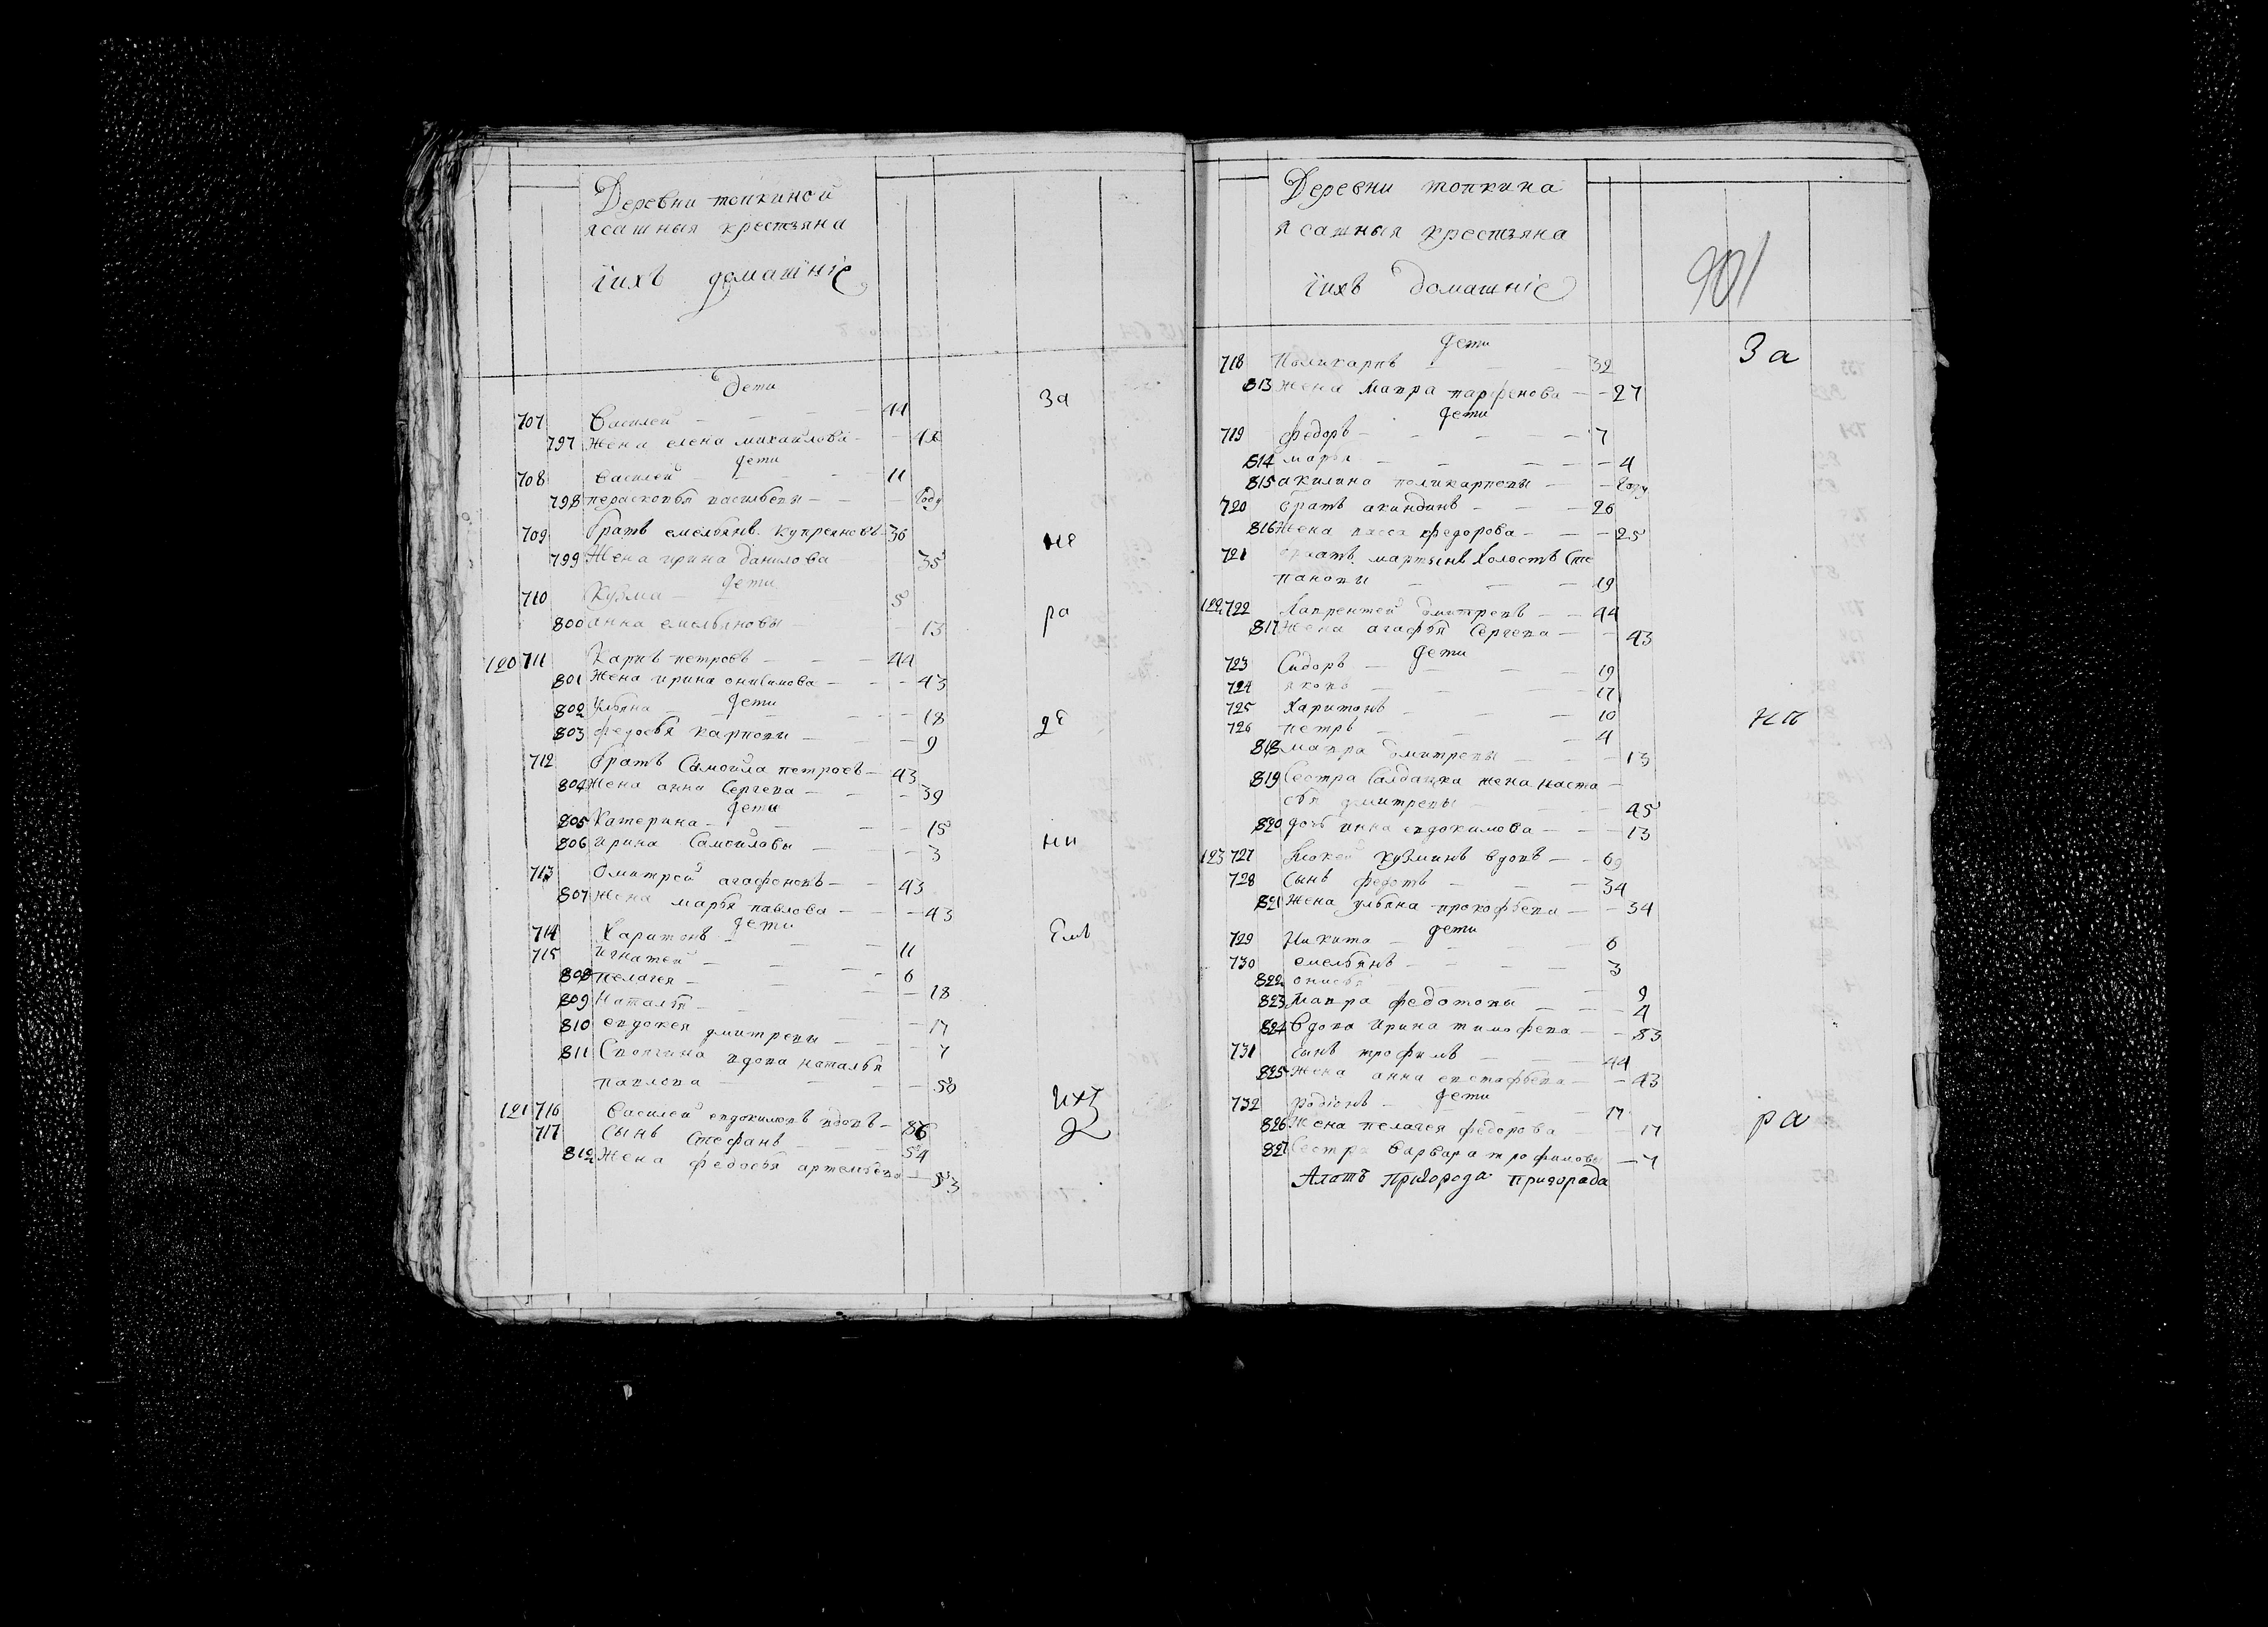 Деревни топкиной
ясашныя крестьяна
иихъ домашніе
Дети
707 Василей 44
797 Жена елена михаилова
За
дети
708 василей 11
798 пераскопья васильевы году
709 братъ емельянъ купреяновъ 36
не
799 Жена ирина данилова 35
дети
710 Кузма 5
800 анна емельяновы 13
ра
120 711 Карпъ петровъ 44
801 Жена ирина онисимова 43
дети
802 ульяна 18
803 федосья карповы 9
де
712 братъ Самойла петровъ 43
804 Жена анна Сергева 39
дети
805 Катерина 15
806 ирина Самойловы 3
ни
713 Дмитрей агафоновъ 43
807 Жена марья павлова 43
дети
714 Харитонъ 11
емъ
715 игнатей 6
808 пелагея 18
809 Наталья 17
810 евдокея дмитревы 7
811 Снопчина вдова наталья
павлова 50
ихъ
121 716 Василей евдокимовъ вдовъ 86
717 сынъ Стефанъ 54
812 Жена федосья артемьева 53
Деревни топкина
ясашныя крестьяна
иихъ домашніе
901
дети
За
718 Поликарпъ 32
813 Жена Мавра парфенова 27
дети
719 федоръ 7
814 марья 4
815 акилина поликарповы году
720 братъ акиндинъ 26
816 Жена васса федорова 25
721 братъ мартынъ холостъ Сте
пановы 19
122 722 Лаврентей дмитревъ 44
817 Жена агафья Сергева 43
дети
723 Сидоръ 19
724 яковъ 17
725 Харитонъ 10
726 петръ 4
818 мавра дмитревы 13
819 Сестра Салдацка жена наста
сья дмитревы 45
820 дочь анна евдокимова 13
123 727 Мокей кузминъ вдовъ 69
728 Сынъ федотъ 34
821 Жена ульяна прокофьева 34
дети
729 Никита 6
730 емельянъ 3
822 онисья 9
823 Мавра федотовы 4
824 вдова ирина тимофева 83
731 сынъ трофимъ 44
825 Жена анна евстафьева 43
дети
732 родіонъ 17
826 Жена пелагея федорова 17
ра
827 Сестра варвара трофимовы 7
Алатъ Пригорода пригорода